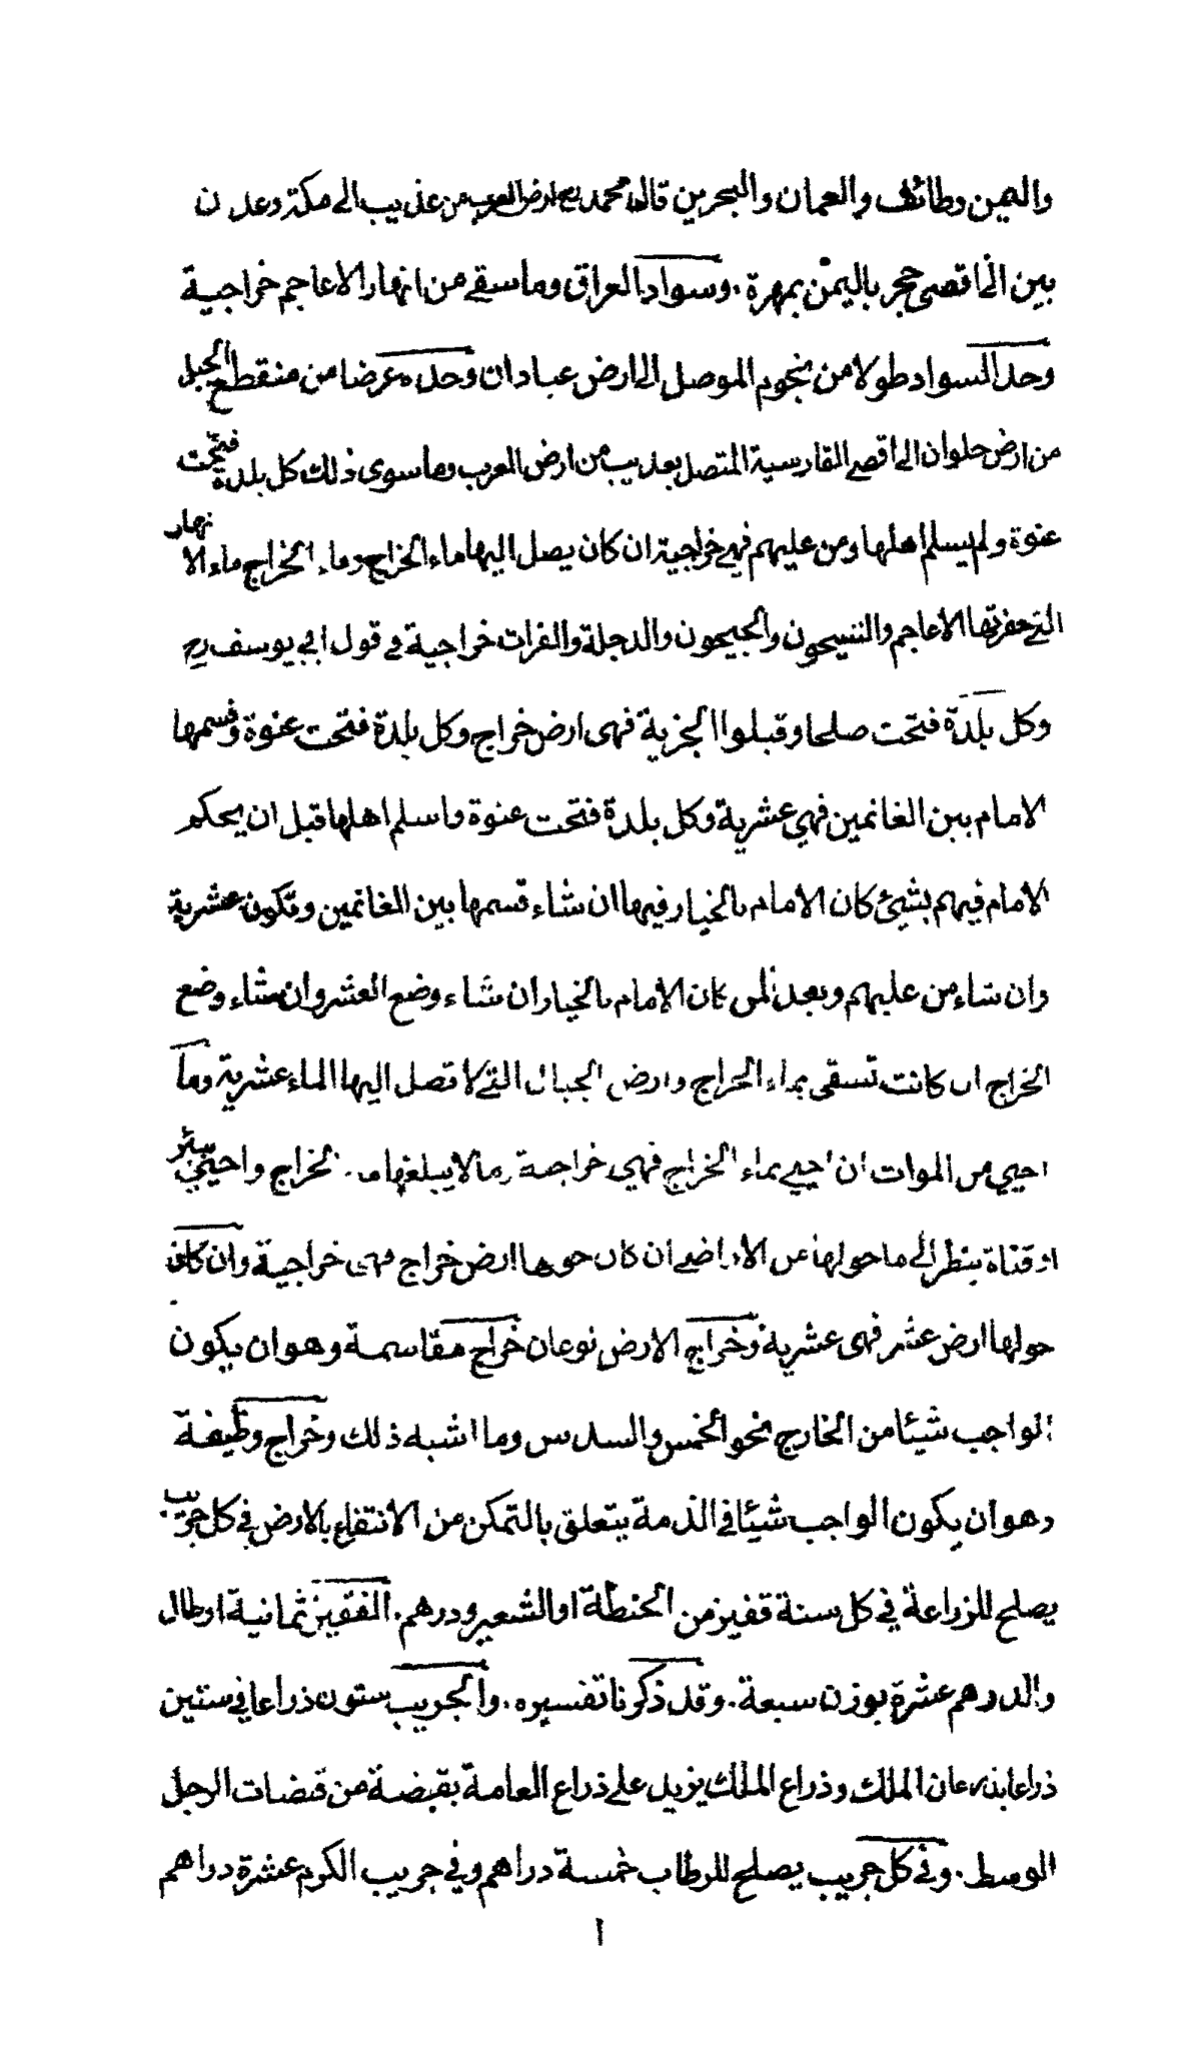 واليمن وطائف والعمان والبحرين قال محمد رح ارض العرب من عذيب الى مكة وعدن
بين الى اقصى حجر باليمن بمهرة . وسواد العراق وما سقى من انهار الاعاجم خراجية
وحد السواد طولا من نجوم الموصل الى ارض عبادان وحده عرضا من منقطع الجبل
من ارض حلوان الى اقصى القادسية المتصل بعذيب من ارض العرب وما سوى ذلك كل بلدة فتحت
عنوة ولم يسلم اهلها ومن عليهم فهي خراجية ان كان يصل اليها ماء الخراج وماء الخراج ماء الانهار
التي حفرتها الاعاجم والسيحون والجيحون والدجلة والفرات خراجية في قول ابي يوسف رح
وكل بلدة فتحت صلحا وقبلوا الجزية فهى ارض خراج وكل بلدة فتحت عنوة وقسمها
الامام بين الغانمين فهي عشرية وكل بلدة فتحت عنوة واسلم اهلها قبل ان يحكم
الامام فيهم بشيئ كان الامام بالخيار فيها ان شاء قسمها بين الغانمين وتكون عشرية
وان شاء من عليهم وبعد المن كان الامام بالخيار ان شاء وضع العشر وان شاء وضع
الخراج ان كانت تسقى بماء الخراج وارض الجبال التي لا تصل اليها الماء عشرية وما
احيي من الموات ان احيي بماء الخراج فهي خراجية وما لا يبلغها ماء الخراج واحيي ببئر
او قناة ينظر الى ما حولها من الاراضي ان كان حولها ارض خراج فهى خراجية وان كان
حولها ارض عشر فهى عشرية وخراج الارض نوعان خراج مقاسمة وهو ان يكون
الواجب شيئا من الخارج نحو الخمس والسدس وما اشبه ذلك وخراج وظيفة
وهو ان يكون الواجب شيئا في الذمة يتعلق بالتمكن من الانتفاع بالارض في كل جريب
يصلح للزراعة في كل سنة قفيز من الحنطة او الشعير ودرهم . القفيز ثمانية ارطال
والدرهم عشرة بوزن سبعة . وقد ذكرنا تفسيره . والجريب ستون ذراعا في ستين
ذراعا بذرعان الملك وذراع الملك يزيد على ذراع العامة بقبضة من قبضات الرجل
الوسط . وفي كل جريب يصلح للرطاب خمسة دراهم وفي جريب الكرم عشرة دراهم
١